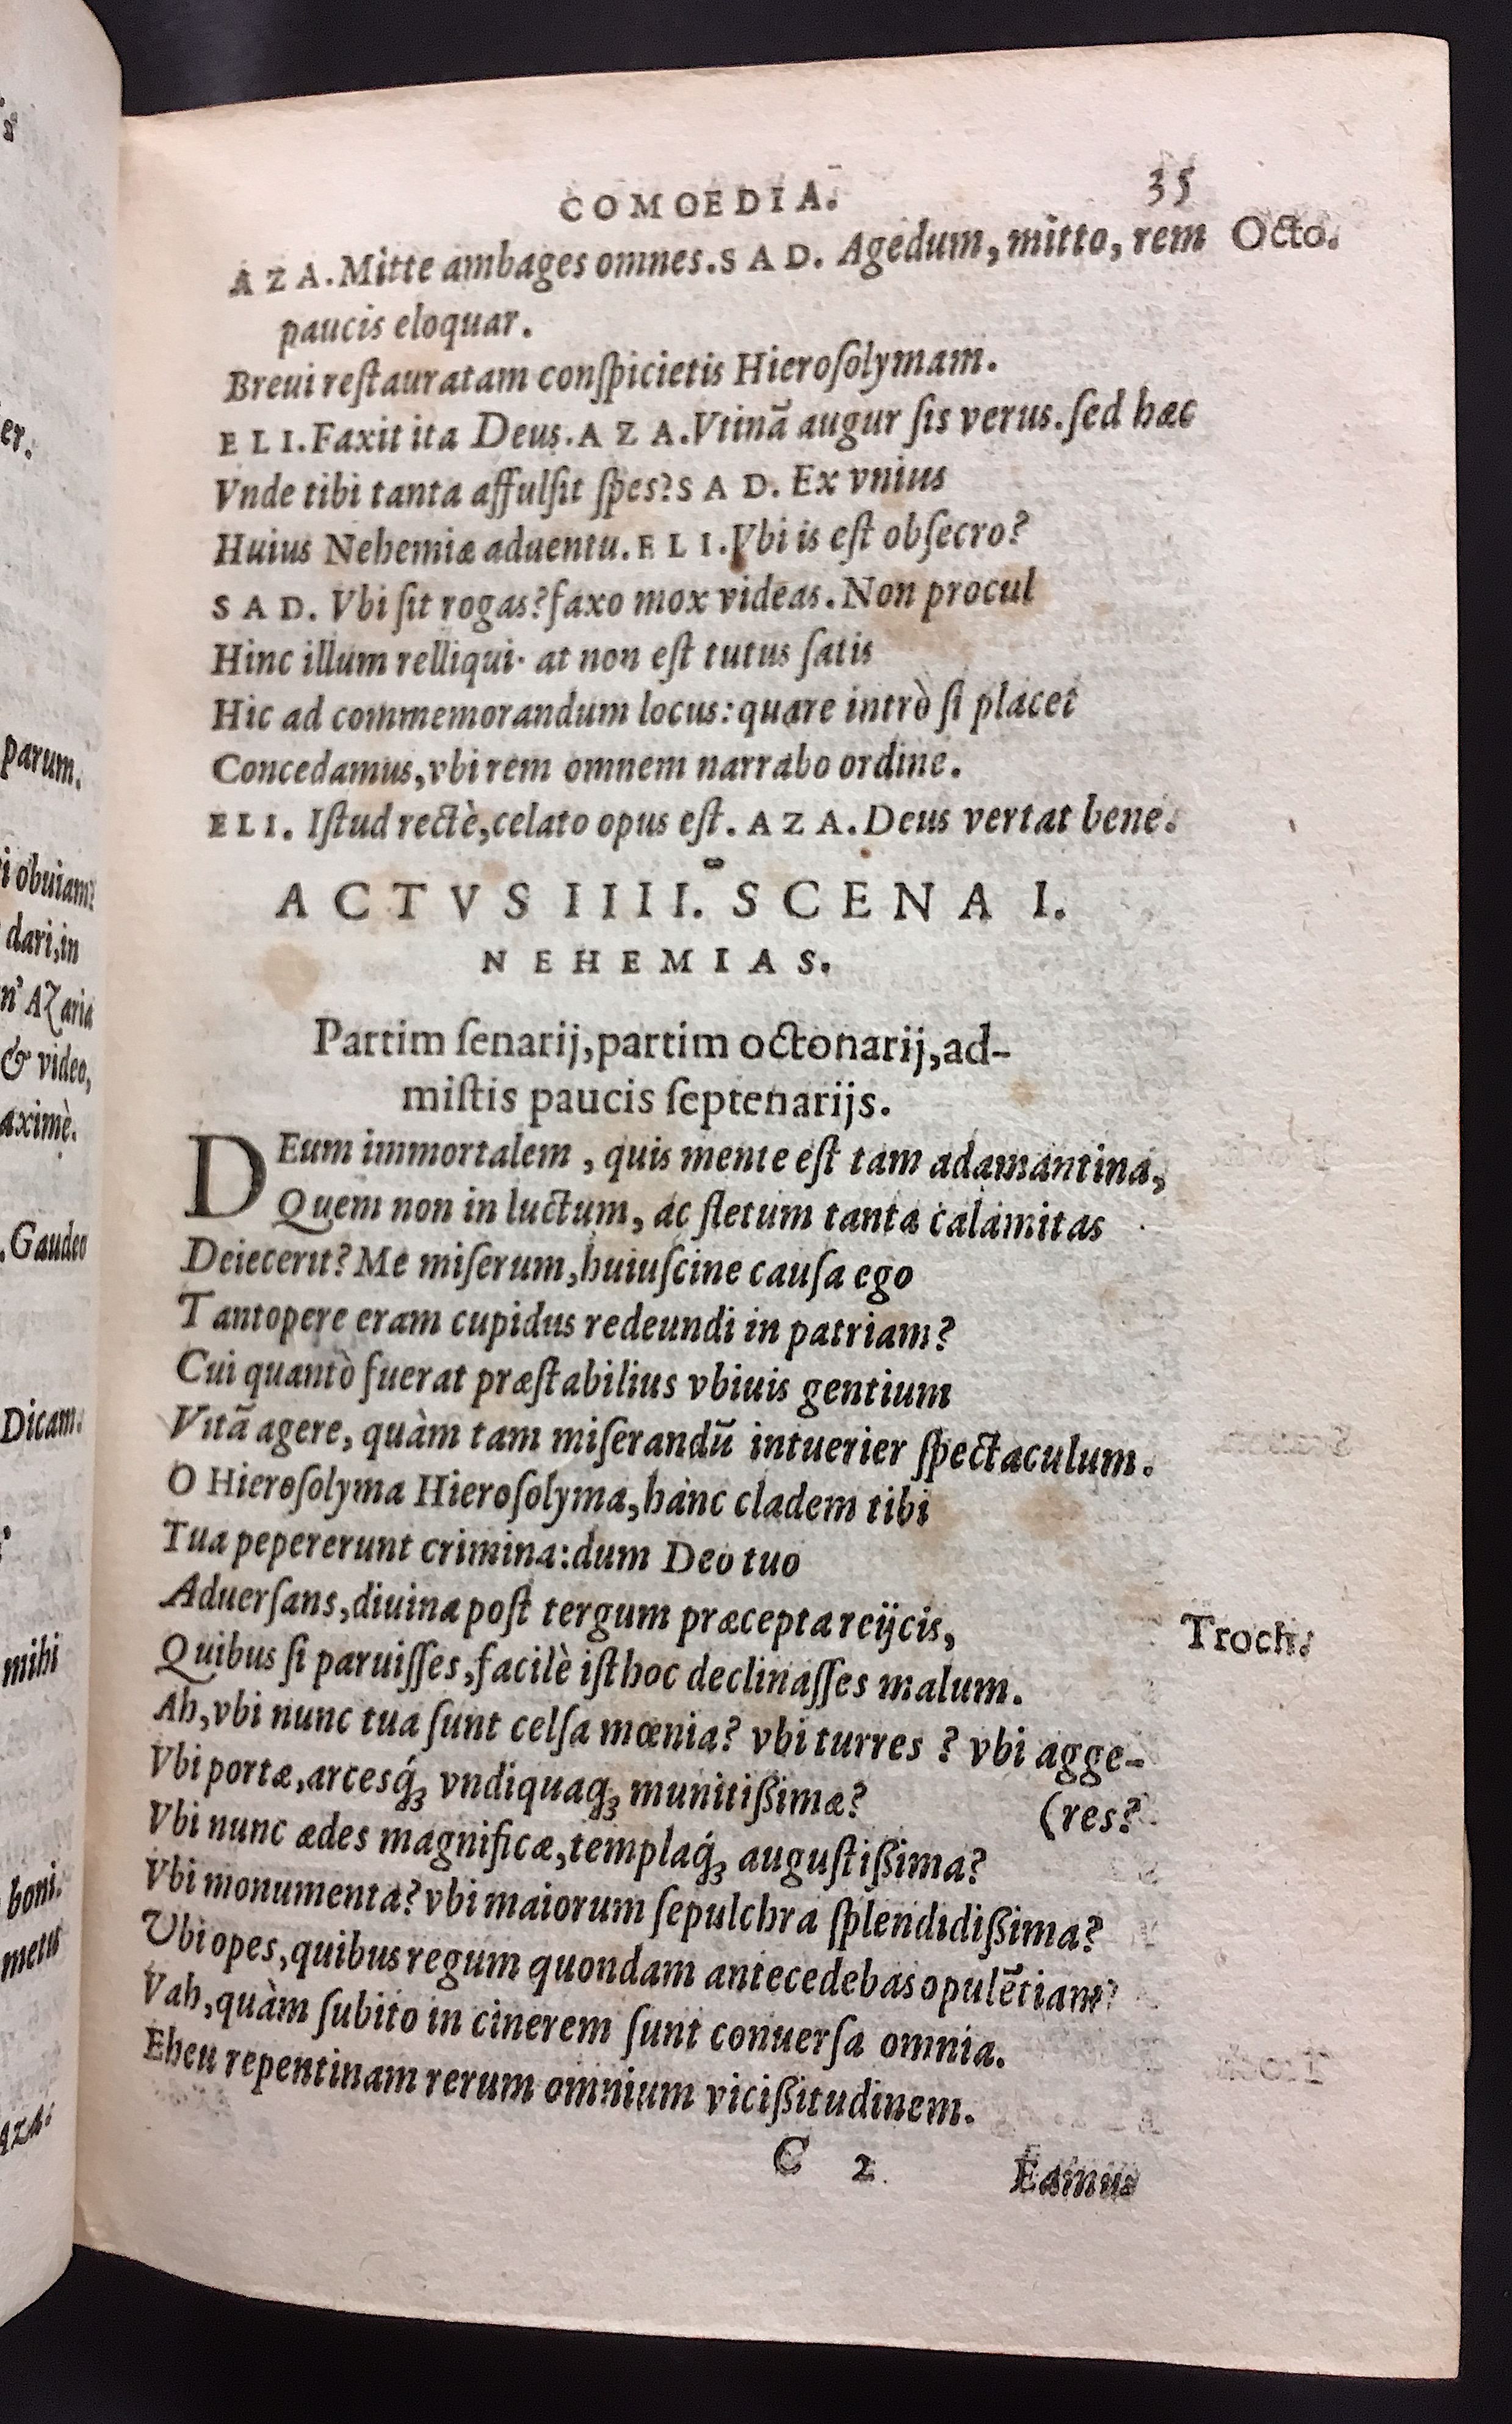 COMOEDIA. 35
AZA. Mitte ambages omnes. SAD. Agedum, mitto, rem Octo.
paucis eloquar.
Breui reſtauratam conſpicietis Hieroſolymam.
ELI. Faxit ita Deus. AZA. Vtinã augur ſis verus. ſed hæc
Vnde tibi tanta affulſit ſpes? SAD. Ex vnius
Huius Nehemiæ aduentu. ELI. Vbi is eſt obſecro?
SAD. Vbi ſit rogas? faxo mox videas. Non procul
Hinc illum relliqui· at non eſt tutus ſatis
Hic ad commemorandum locus: quare intrò ſi placet
Concedamus, vbi rem omnem narrabo ordine.
ELI. Iſtud rectè, celato opus eſt. AZA. Deus vertat bene.
ACTVS IIII. SCENA I.
NEHEMIAS.
Partim ſenarij, partim octonarij, ad-
miſtis paucis ſeptenarijs.
DEum immortalem, quis mente eſt tam adamantina,
Quem non in luctum, ac fletum tanta calamitas
Deiecerit? Me miſerum, huiuſcine cauſa ego
Tantopere eram cupidus redeundi in patriam?
Cui quantò fuerat præſtabilius vbiuis gentium
Vitã agere, quàm tam miſerandũ intuerier ſpectaculum.
O Hieroſolyma Hieroſolyma, hanc cladem tibi
Tua pepererunt crimina: dum Deo tuo
Aduerſans, diuina poſt tergum præcepta reijcis,
Quibus ſi paruiſſes, facilè iſthoc declinaſſes malum. Troch.
Ah, vbi nunc tua ſunt celſa mœnia? vbi turres? vbi agge-
Vbi portæ, arcesq́ꝫ vndiquaqꝫ munitißimæ? (res?
Vbi nunc ædes magnificæ, templaq́ꝫ auguſtißima?
Vbi monumenta? vbi maiorum ſepulchra ſplendidißima?
Vbi opes, quibus regum quondam antecedebas opulẽtiam?
Vah, quàm ſubito in cinerem ſunt conuerſa omnia.
Eheu repentinam rerum omnium vicißitudinem.
C 2 Eamus
parum.
i obuiam?
dari, in
n' Azaria
& video,
aximè.
. Gaudeo
Dicam.
mihi
boni.
metus
AZA.